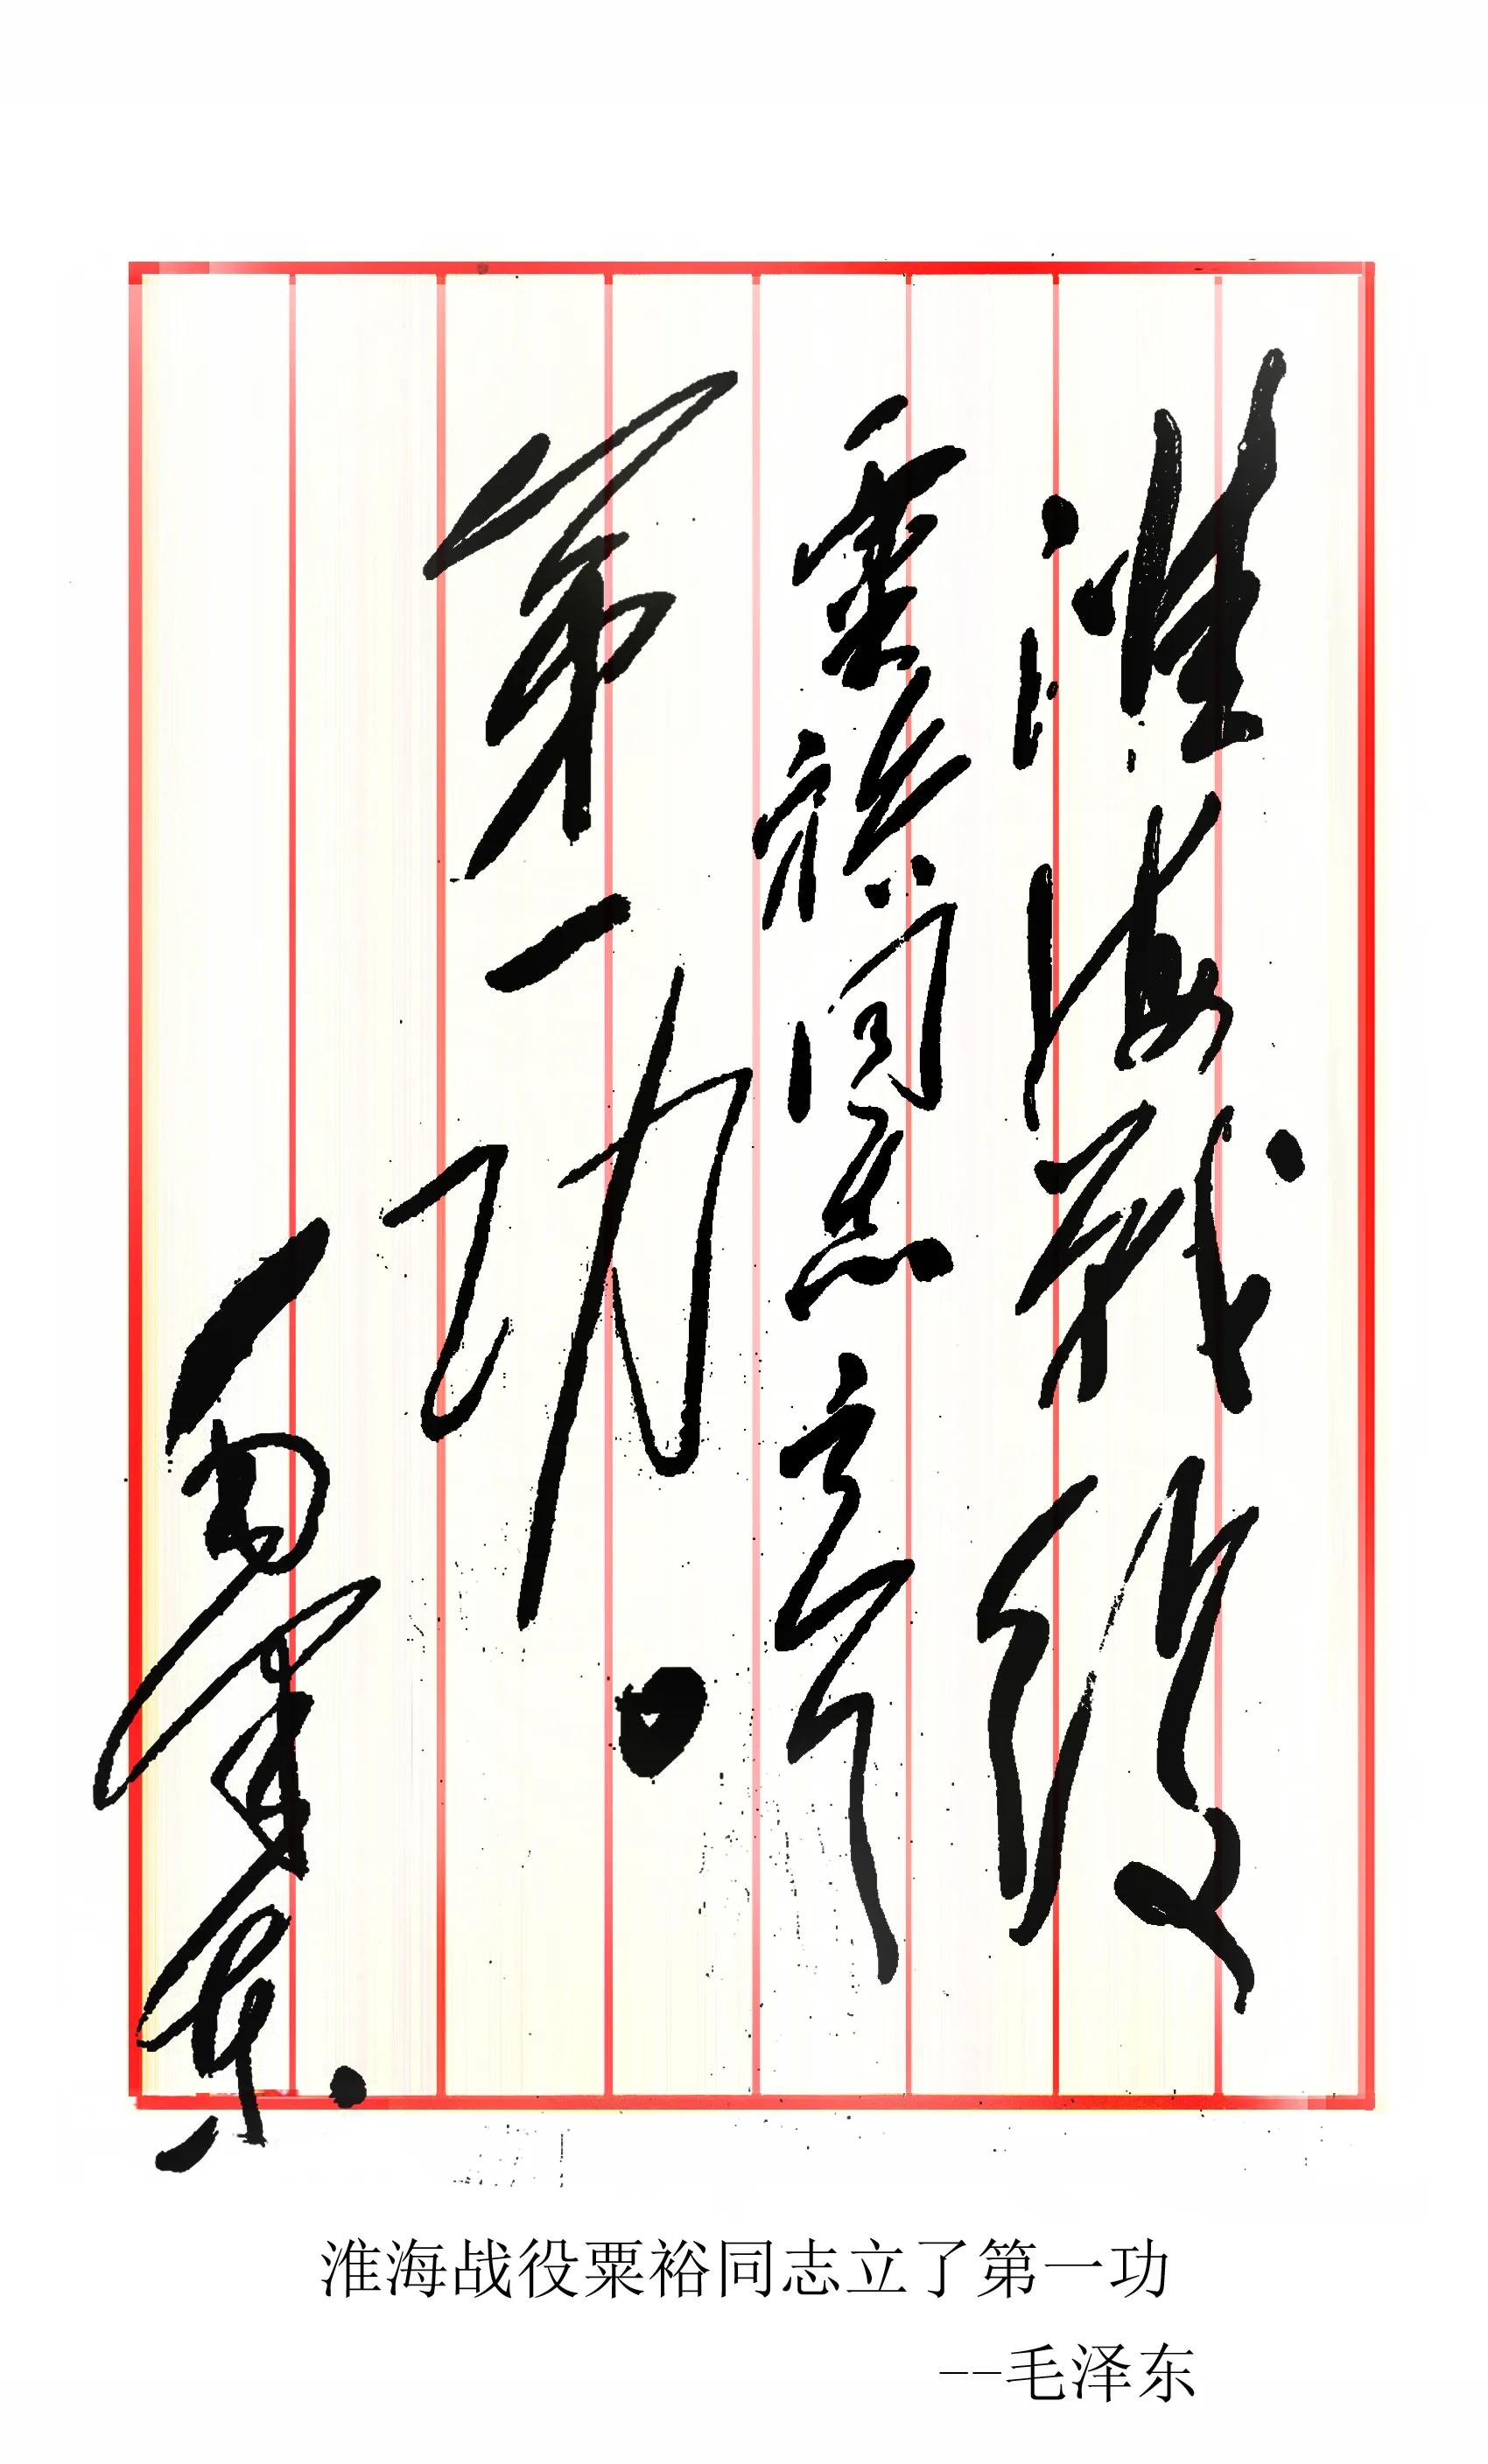 淮海戰役
粟裕同志立了
第一功。
毛泽东
淮海战役粟裕同志立了第一功
--毛泽东